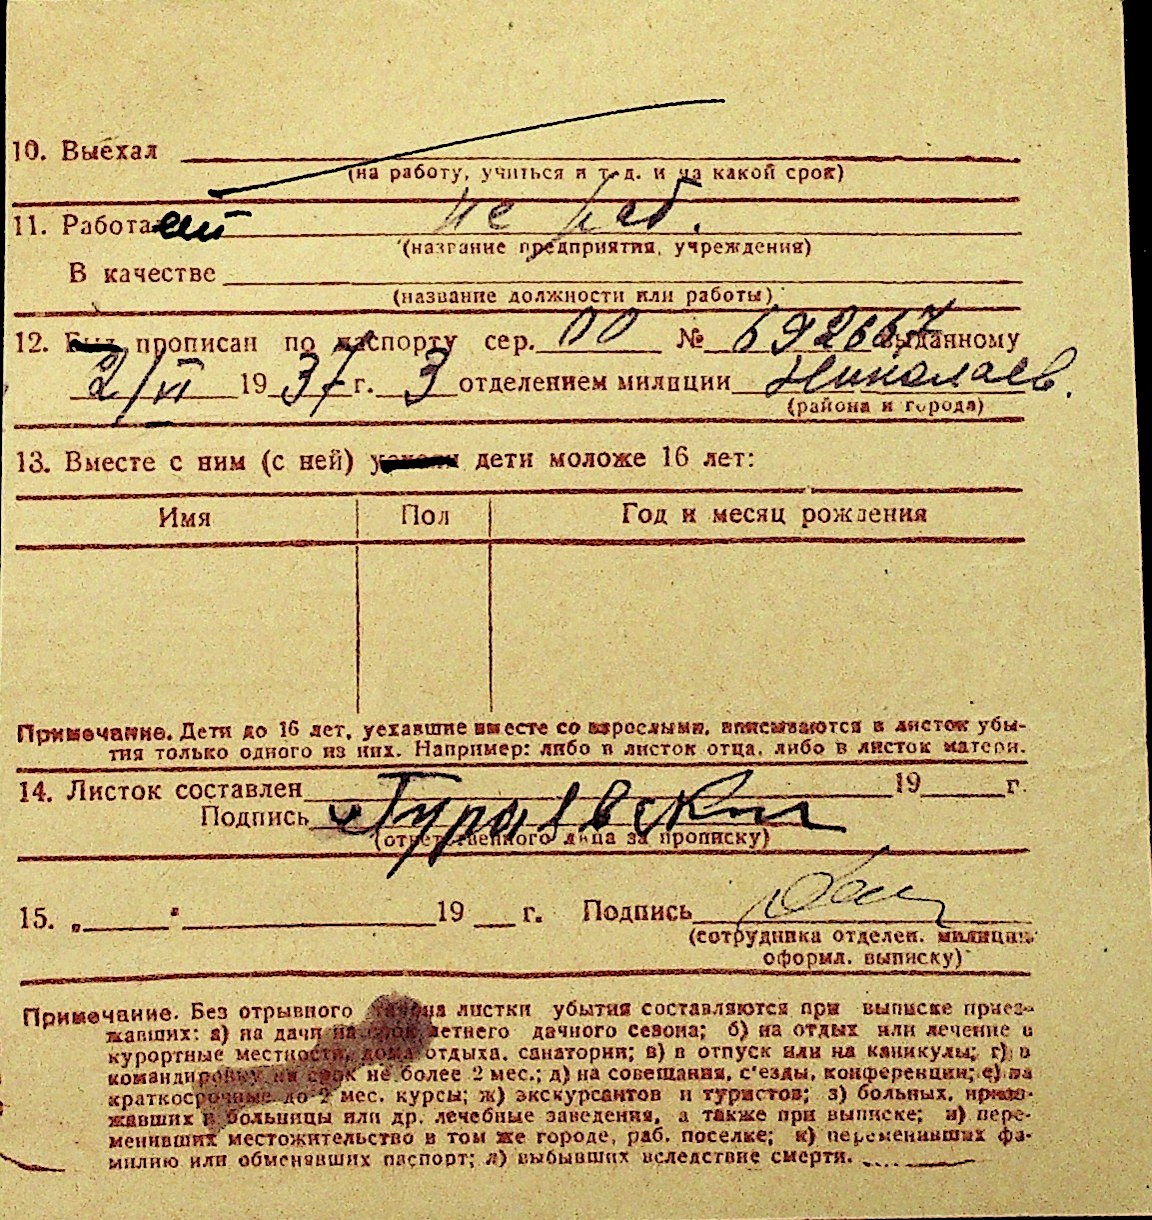 10. Выехал
(на работу, учиться и т. д. и на какой срок)
11. Работает не раб.
(название предприятия, учреждения)
В качестве
(название должности или работы)
12. Был прописан по паспорту сер. ОО № 692667 выданному
2/VI 1937 г. 3 отделением милиции Николаев.
(района и города)
13. Вместе с ним (с ней) уехали дети моложе 16 лет:
Имя Пол Год и месяц рождения
Примечание. Дети до 16 лет, уехавшие вместе со взрослыми, вписываются в листок убы-
тия только одного из них. Например: либо в листок отца, либо в листок матери.
14. Листок составлен 19 г.
Подпись
(ответственного лица за прописку)
15. „ " 19 г. Подпись
(сотрудника отделен. милиции,
оформл. выписку)
Примечание. Без отрывного талона листки убытия составляются при выписке приез-
жавших: а) на дачи на срок летнего дачного сезона; б) на отдых или лечение в
курортные местности, дома отдыха, санатории; в) в отпуск или на каникулы; г) в
командировку на срок не более 2 мес.; д) на совещания, с'езды, конференции; е) на
краткосрочные до 2 мес. курсы; ж) экскурсантов и туристов; з) больных, приез-
жавших в больницы или др. лечебные заведения, а также при выписке; и) пере-
менивших местожительство в том же городе, раб. поселке; к) переменивших фа-
милию или обменявших паспорт; л) выбывших вследствие смерти.